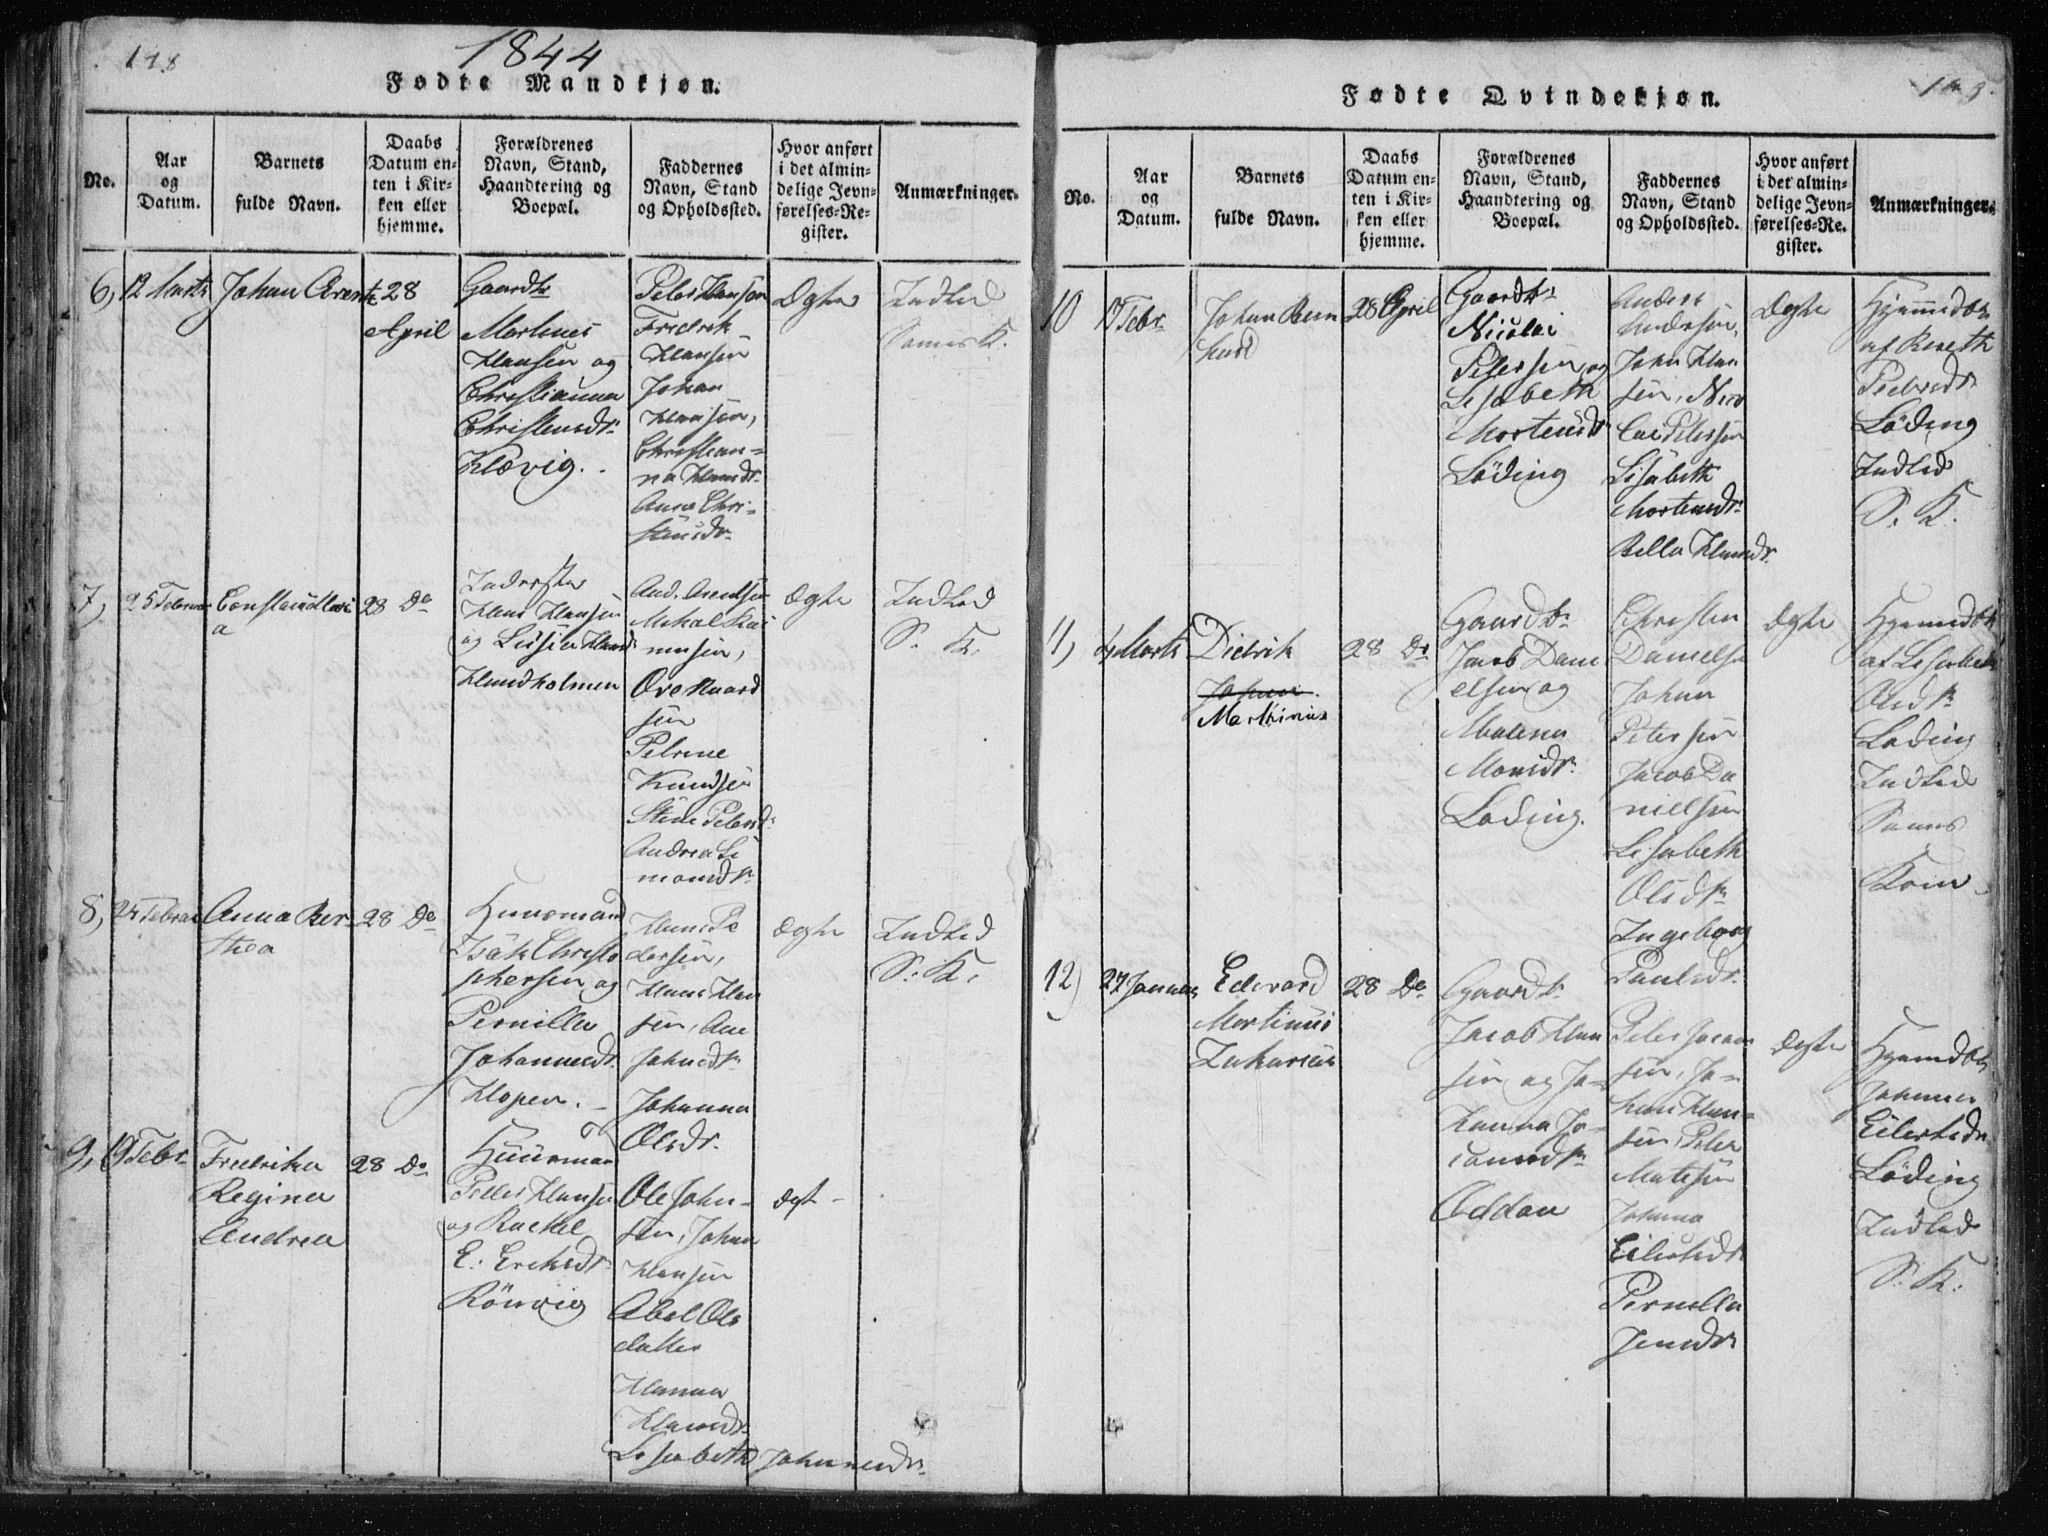 148
1844
Fødte Mandkjøn.
No.
Aar
og
Datum.
Barnets
fulde Navn.
Daabs
Datum en-
ten i Kir-
ken eller
hjemme.
Forældrenes
Navn, Stand,
Haandtering og
Boepæl.
Faddernes
Navn, Stand
og Opholdssted.
Hvor anført
i det almin-
delige Jevn-
førelses-Re-
gister.
Anmærkninger.
6, 12 Marts
Johan Arent
28
April
Gaardbr
Martines
Hansen og
Christianna
Christensdr
Klævig.
Peter Hansen
Fredrik
Hansen
Johan
Hansen,
Christian=
na Hansdr
Anne Chri-
stensdr
Ægte
Indled
Sams K.
7, 25 Februar
28 Do
Inderster
Hans Hansen
og
Hundholmen
And. Arentsen
sen
Petrine
Knudsen
Stine Petersd
Andrea Si
monsdr
Ægte
Indled
S. K.
8, 24 Februar
Anna Ber-
thea
28 Do
Huusmand
Isak Christo
phersen og
Pernilla
Johannesdr
Klopen.
Hans Pe
dersen,
Hans Han
sen, Ane
Johnsdr
Johanna
Olsdr.
Ægte
Indled
S. K.
9, 19 Febr
Fredrika
Regina
Andrea
28 Do
Huusman
Peter Hansen
og Rachel
E. Ericksdr
Rönvig
Ole John-
sen, Johan
Hansen
Abel Ols
datter
Hanna
Hansdr
Lisabeth Johannesdr
Ægt
Fødte Qvindekjøn.
No.
Aar
og
Datum.
Barnets
fulde Navn.
Daabs
Datum en-
ten i Kir-
ken eller
hjemme.
Forældrenes
Navn, Stand,
Haandtering og
Boepæl.
Faddernes
Navn, Stand
og Opholdssted.
Hvor anført
i det almin-
delige Jevn-
førelses-Re-
gister.
Anmærkninger.
10
17 Febr
Johan Bern
hard
28 April
Gaardbr
Nicolai
Petersen og
Lisabeth
Mortensdr
Löding
Anders
Andersen,
John Han
sen, Nico
lai Petersen
Lisabeth
Mortensdr
Bella Hansdr
Ægte
Hjemmedøbt
af Bereth
Pedersdr
Löding
Indled
S. K.
11, 4 Marts
Didrik
Johan
Martinius
28 Do
Gaardbr
Jacob Dani
elsen og
Malena
Monsdr
Loding.
Christen
Danielsen
Johan
Petersen
Jacob Da
nielsen
Lisabeth
Olsdr
Ingeborg
Paulsdr
Ægte
Hjemmedøbt
af Lisabeth
Olsdr
Loding
Indled
Sams
Kom
12) 27 Januar
Edevard
Martinus
Zakarias
28 Do
Gaardbr
Jacob Han
sen og Jo-
hanna Jo-
Oddan
Peter
sen, Jo-
han Han-
sen, Peter
Matisen
Johanna
Eilertsdr
Pernella
Jensdr
Ægte
Hjemmdøbt
Johanna
Eilertsdr
Löding
Indled
S. K.